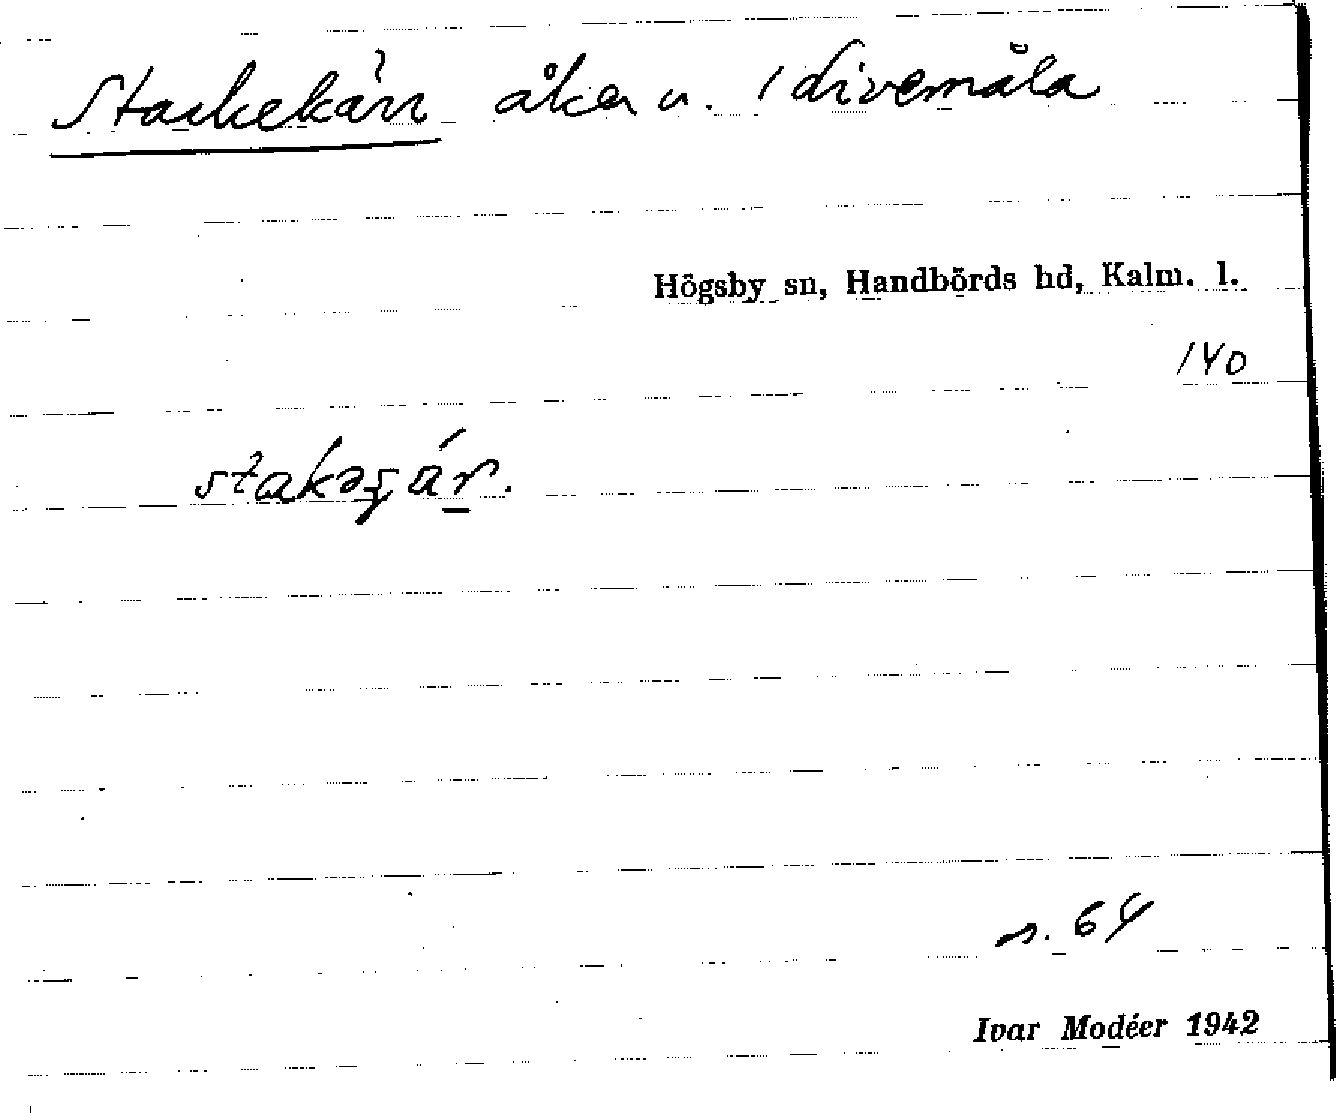 Stackekärr åker u. Idivemåla
Högsby sn, Handbörds hd, Kalm. l.
140
s. 64
Ivar Modéer 1942